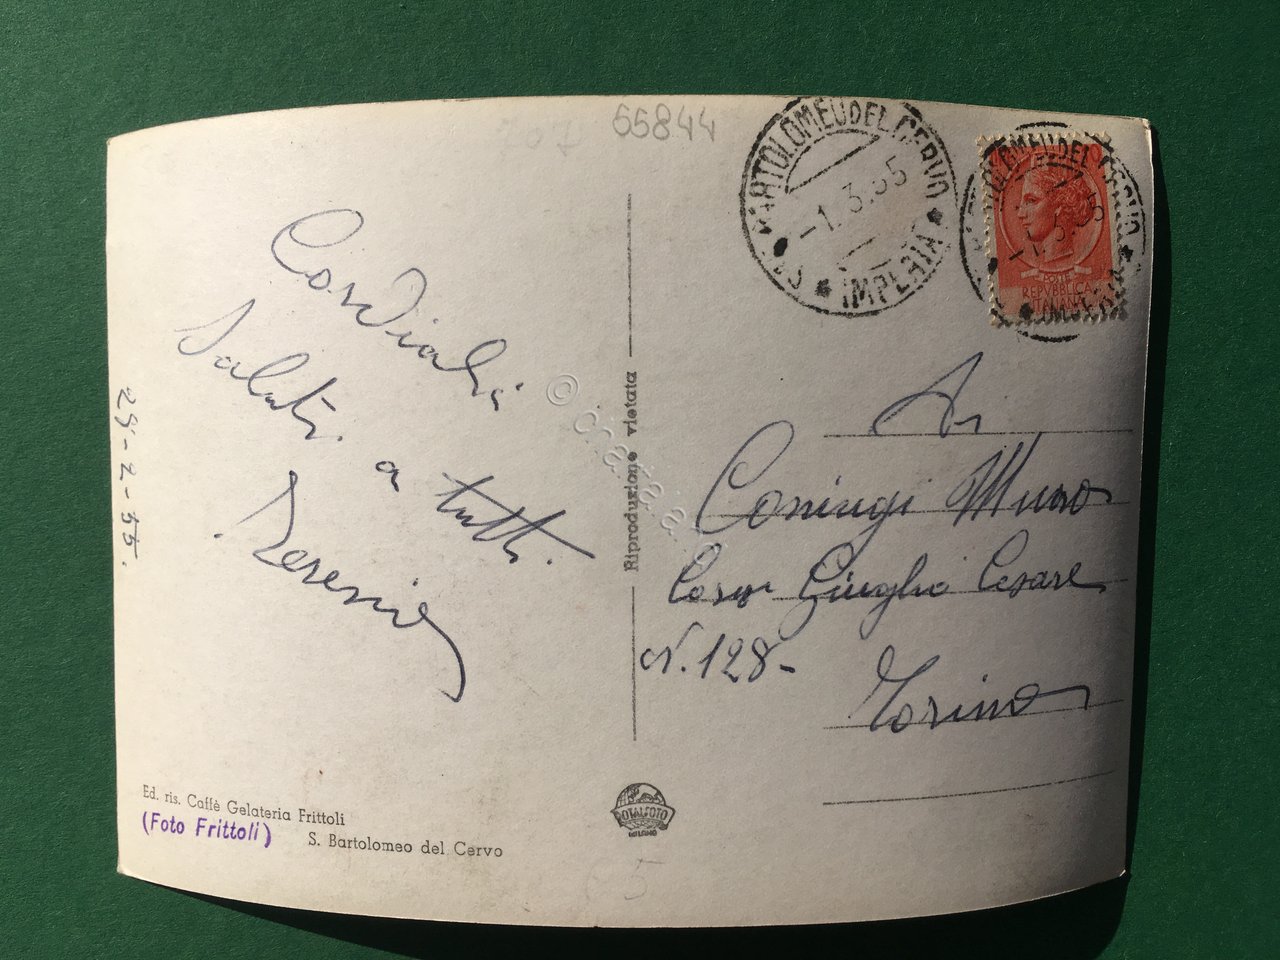 55844
S. BARTOLOMEU DEL CERVO
-1.3.55
* IMPERIA *
REPVBBLICA
ITALIANA
Cordiali
Saluti.
a tutti.
29-2-55.
Riproduzione vietata
Ai
Coniugi
Corso Giuglio Cesare
N. 128-
Torino
Ed. ris. Caffè Gelateria Frittoli
(Foto Frittoli)
S. Bartolomeo del Cervo
ROTALFOTO
MILANO